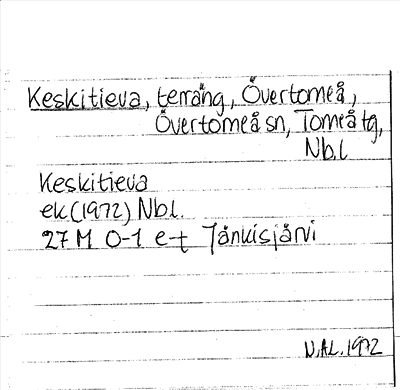 Keskitieva, terräng, Övertorneå,
Övertorneå sn, Torneå tg,
Nb.l
Keskitieva
ek (1972) Nbl.
27 M 0-1 e-f Jänkisjärvi
N.ÅL. 1972